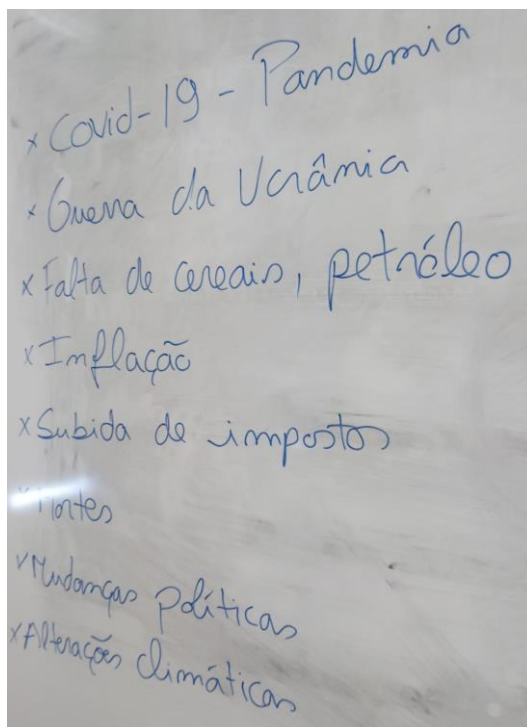 x Covid-19 - Pandemia
x Guerra da Ucrânia
x Falta de cereais, petróleo
x Inflação
x Subida de impostos
x Mortes
x Mudanças políticas
x Alterações climáticas